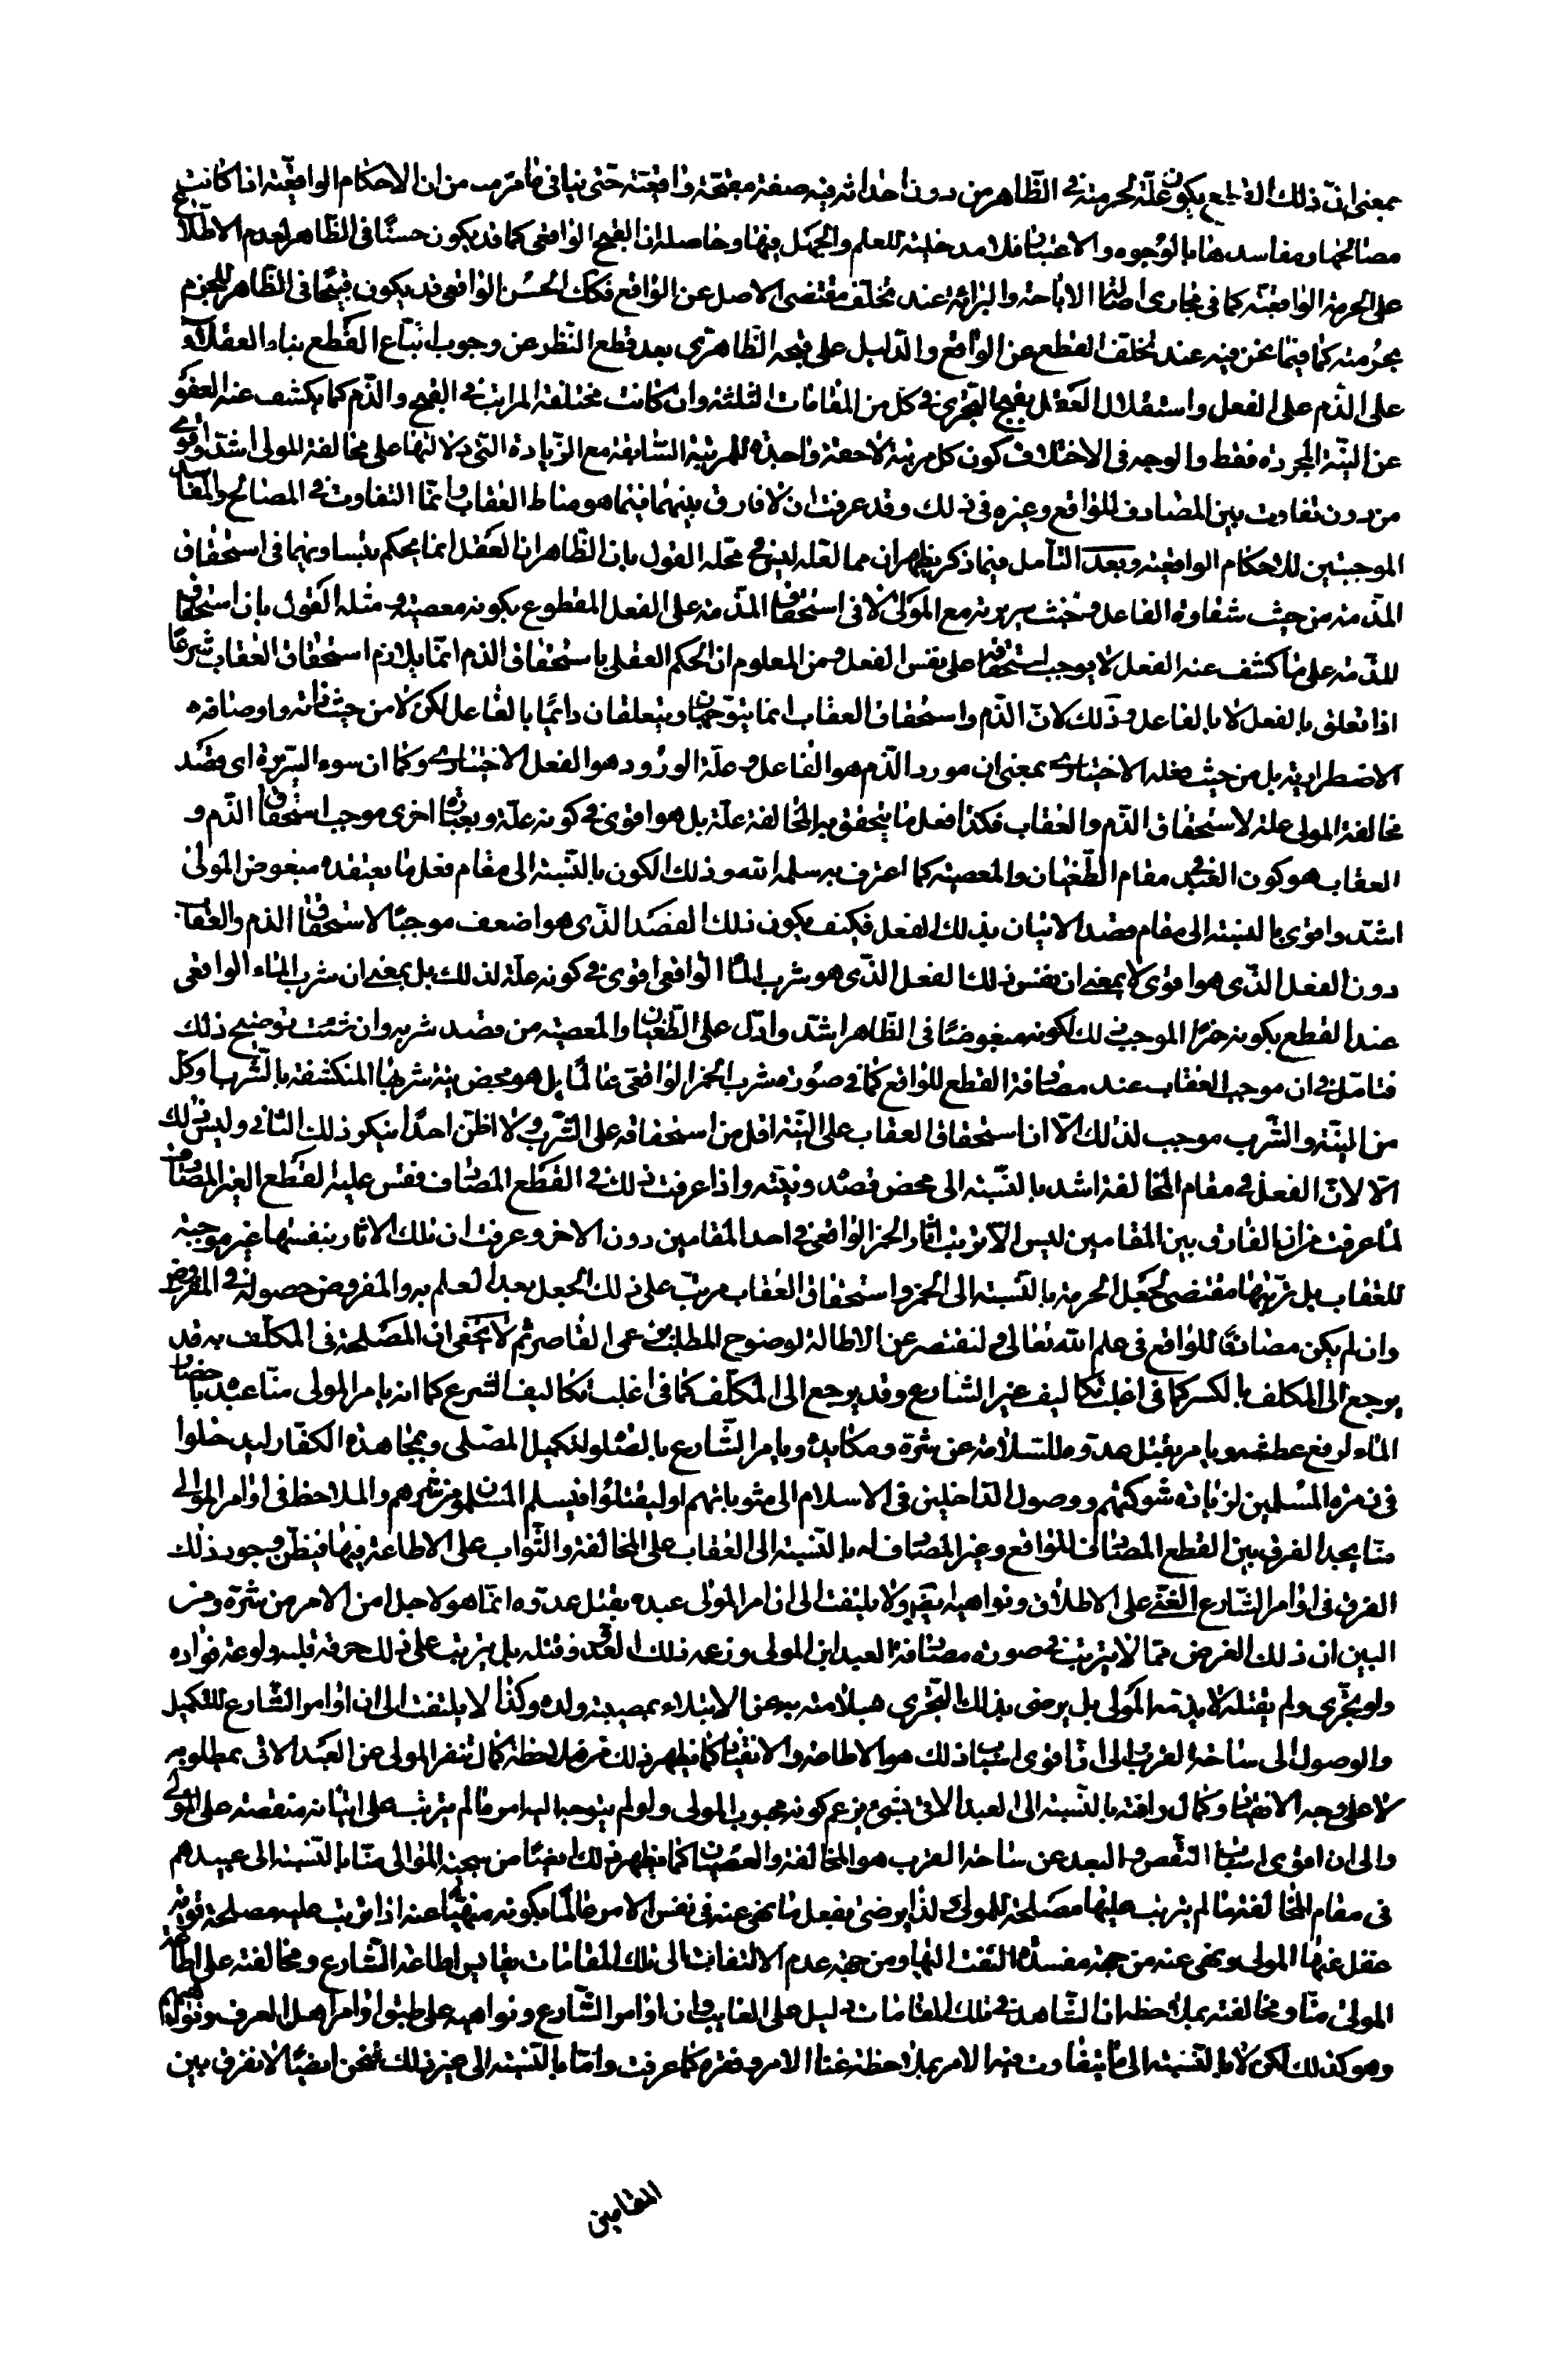 بمعنى انّ ذلك القطع يكون علّة لحرمته في الظّاهر من دون احداثه فيه صفة مقبّحة واقعيّة حتّى ينافي ما مرّ من ان الاحكام الواقعيّة اذا كانت
مصالحها ومفاسدها بالوجوه والاعتبار فلا مدخليّة للعلم والجهل فيها وحاصله ان القبيح الواقعي كما قد يكون حسنًا في الظّاهر لعدم الاطّلاع
على الحرمة الواقعيّة كما في مجاري اصالتي الاباحة والبرائة عند تخلّف مقتضى الاصل عن الواقع فكك الحسن الواقعي قد يكون قبيحًا في الظّاهر للجزم
بحرمته كما فيما نحن فيه عند تخلّف القطع عن الواقع والدّليل على قبحه الظّاهري بعد قطع النّظر عن وجوب اتّباع القطع بناء العقلاء
على الذّم على الفعل واستقلال العقل بقبح التجرّي في كل من المقامات الثلثة وان كانت مختلفة المراتب في القبح والذّم كما يكشف عنه العفو
عن النيّة المجرّدة فقط والوجه في الاختلاف كون كل مرتبة لاحقة واجدة للمرتبة السّابقة مع الزّيادة الّتي دلالتها على مخالفة المولى اشدّ واقوى
من دون تفاوت بين المصادف للواقع وغيره في ذلك وقد عرفت ان لا فارق بينهما فيما هو مناط العقاب وانّما التفاوت في المصالح والمفاسد
الموجبتين للاحكام الواقعيّة وبعد التّأمل فيما ذكر يظهر ان مما لعلّه ليس في محلّه القول بان الظّاهر ان العقل انما يحكم بتساويهما في استحقاق
المذّمة من حيث شقاوة الفاعل وخبث سريرته مع المولى لا في استحقاق المذّمة على الفعل المقطوع بكونه معصية ومثله القول بان استحقاق
المذّمة على ما كشف عنه الفعل لا يوجب استحقاقه على نفس الفعل ومن المعلوم ان الحكم العقلي باستحقاق الذم انّما يلازم استحقاق العقاب شرعًا
اذا تعلق بالفعل لا بالفاعل وذلك لانّ الذّم واستحقاق العقاب انما يتوجّهان ويتعلقان دائمًا بالفاعل لكن لا من حيث ذاته واوصافه
الاضطرارية بل من حيث فعله الاختياري بمعنى ان مورد الذّم هو الفاعل وعلّة الورود هو الفعل الاختياري وكما ان سوء السّريرة اي قصد
مخالفة المولى علة لاستحقاق الذّم والعقاب فكذا فعل ما يتحقق به المخالفة علّة بل هو اقوى في كونه علّة وبعبارة اخرى موجب استحقاق الذّم و
العقاب هو كون العبد في مقام الطّغيان والمعصية كما اعترف به سلمه الله وذلك الكون بالنّسبة الى مقام فعل ما يعتقده مبغوض المولى
اشدّ واقوى بالنسبة الى مقام قصد الاتيان بذلك الفعل فكيف يكون ذلك القصد الّذي هو اضعف موجبًا لاستحقاق الذم والعقاب
دون الفعل الّذي هو اقوى لا بمعنى ان نفس ذلك الفعل الّذي هو شرب الماء الواقعي اقوى في كونه علّة لذلك بل بمعنى ان شرب الماء الواقعي
عند القطع بكونه خمرًا الموجب ذلك لكونه مبغوضًا في الظّاهر اشدّ وادلّ على الطّغيان والمعصية من قصد شربه وان شئت توضيح ذلك
فتأمّل في ان موجب العقاب عند مصادفة القطع للواقع كما في صورة شرب الخمر الواقعي عالمًا بل هو محض نيّة شربها المنكشفة بالشّرب او كل
من النيّة والشّرب موجب لذلك الّا ان استحقاق العقاب على النيّة اقل من استحقاقه على الشّرب ولا اظن احدًا ينكر ذلك الثاني وليس ذلك
الّا لانّ الفعل في مقام المخالفة اشد بالنّسبة الى محض قصده ونيّته واذا عرفت ذلك في القطع المصادف فقس عليه القطع الغير المصادف
لما عرفت من ان الفارق بين المقامين ليس الّا ترتيب اثار الخمر الواقعي في احد المقامين دون الاخر وعرفت ان تلك الاثار بنفسها غير موجبة
للعقاب بل ترتّبها مقتضى لجعل الحرمة بالنّسبة الى الخمر واستحقاق العقاب مرتّب على ذلك الجعل بعد العلم به والمفروض حصوله في المفروض
وان لم يكن مصادفًا للواقع في علم الله تعالى ولنقتصر عن الاطالة لوضوح المطلب وعمى القاصر ثم لا يخفى ان المصلحة في المكلّف به قد
يرجع الى المكلف بالكسر كما في اغلب تكاليف غير الشارع وقد يرجع الى المكلّف كما في اغلب تكاليف الشرع كما انه يأمر المولى منّا عبده باحضار
الماء لرفع عطشه ويأمر بقتل عدوّه للسّلامة عن شرّه ومكايده ويأمر الشّارع بالصّلوة لتكميل المصلى وبمجاهدة الكفّار ليدخلوا
في زمرة المسلمين لزيادة شوكتهم ووصول الدّاخلين في الاسلام الى مثوباتهم او ليقتلوا فيسلم المسلمون من شرورهم والملاحظ في اوامر الموالي
منّا يجد الفرق بين القطع المصادف للواقع وغير المصادف له بالنّسبة الى العقاب على المخالفة والثّواب على الاطاعة فيها فيظنّ وجود ذلك
الفرق في اوامر الشّارع الغنيّ على الاطلاق ونواهيه بقيده ولا يلتفت الى ان امر المولى عبده بقتل عدوّه انّما هو لاجل امن الامر من شرّه ومن
البين ان ذلك الغرض ممّا لا يترتب في صورة مصادفة العبد ابن المولى وزعمه ذلك العدوّ فقتله بل يترتب على ذلك حرقة قلبه ولوعة فؤاده
ولو تجرّى ولم يقتله لا يذمّه المولى بل يرضى بذلك التجرّي لسلامته به عن الابتلاء بمصيبة ولده وكذا لا يلتفت الى ان اوامر الشّارع للتكميل
والوصول الى ساحة القرب والى ان اقوى اسباب ذلك هو الاطاعة والانقياد كما يظهر ذلك من ملاحظة كمال تنفر المولى عن العبد الاتي بمطلوبه
لا على وجه الانقياد وكمال رافته بالنّسبة الى العبد الاتي بشيء يزعم كونه محبوب المولى ولو لم يتوجه اليه امر ما لم يترتب على اتيانه منقصة على المولى
والى ان اقوى اسباب النّقص والبعد عن ساحة القرب هو المخالفة والعصيان كما يظهر ذلك ايضًا من سجية الموالى منّا بالنّسبة الى عبيدهم
في مقام المخالفة ما لم يترتب عليها مصلحة للمولى لذا يرضى بفعل ما نهى عنه في نفس الامر عالمًا بكونه منهيًّا عنه اذا ترتب عليه مصلحة قويّة
غفل عنها المولى ونهى عنه من جهة مفسدة التفت اليها ومن جهة عدم الالتفات الى تلك المقامات يقايس اطاعة الشّارع ومخالفته على اطاعة
المولى منّا ومخالفته بملاحظة ان الشّاهد في تلك المقامات دليل على الغايب وان اوامر الشّارع ونواهيه على طبق اوامر اهل العرف ونواهيهم
وهو كذلك لكن لا بالنّسبة الى ما يتفاوت فيه الامر بملاحظة غناء الامر وفقره كما عرفت وامّا بالنّسبة الى غير ذلك فنحن ايضًا لا نفرق بين
المقامين